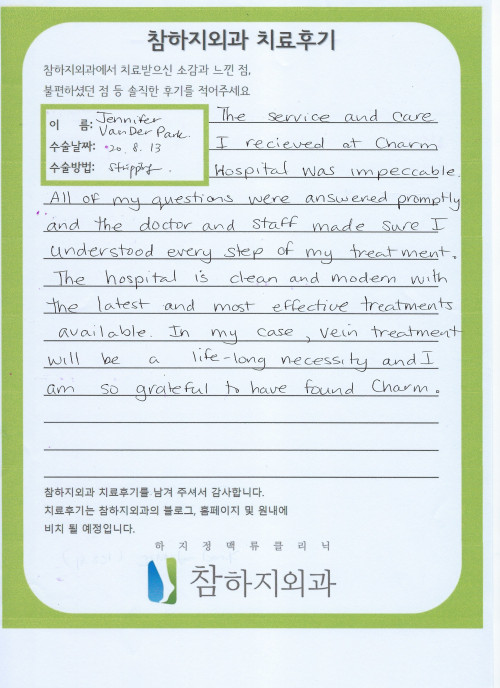 참하지외과 치료후기
참하지외과에서 치료받으신 소감과 느낀 점,
불편하셨던 점 등 솔직한 후기를 적어주세요
이 름: Jennifer VanDer Park
수술날짜: '20. 8. 13
수술방법: stripping.
The service and care
I recieved at Charm
Hospital was impeccable.
All of my questions were answered promptly
and the doctor and staff made sure I
understood every step of my treatment.
The hospital is clean and modern with
the latest and most effective treatments
available. In my case, vein treatment
will be a life-long necessity and I
am so grateful to have found Charm.
참하지외과 치료후기를 남겨 주셔서 감사합니다.
치료후기는 참하지외과의 블로그, 홈페이지 및 원내에
비치 될 예정입니다.
하지정맥류클리닉
참하지외과